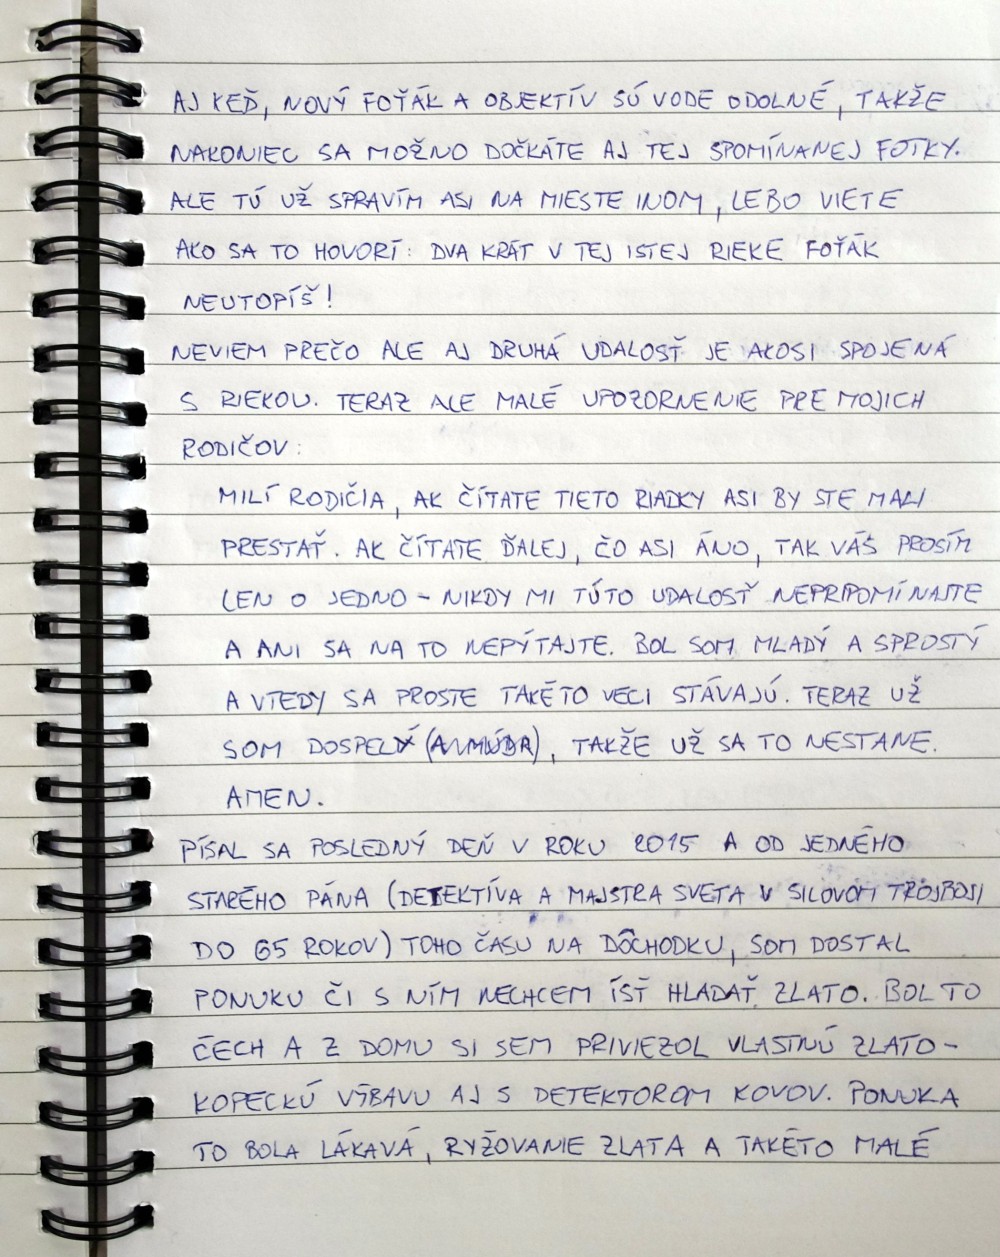 AJ KEĎ, NOVÝ FOŤÁK A OBJEKTÍV SÚ VODE ODOLNÉ, TAKŽE
NAKONIEC SA MOŽNO DOČKÁTE AJ TEJ SPOMÍNANEJ FOTKY.
ALE TÚ UŽ SPRAVÍM ASI NA MIESTE INOM, LEBO VIETE
AKO SA TO HOVORÍ: DVA KRÁT V TEJ ISTEJ RIEKE FOŤÁK
NEUTOPÍŠ!
NEVIEM PREČO ALE AJ DRUHÁ UDALOSŤ JE AKOSI SPOJENÁ
S RIEKOU. TERAZ ALE MALÉ UPOZORNENIE PRE MOJICH
RODIČOV:
MILÍ RODIČIA, AK ČÍTATE TIETO RIADKY ASI BY STE MALI
PRESTAŤ. AK ČÍTATE ĎALEJ, ČO ASI ÁNO, TAK VÁS PROSÍM
LEN O JEDNO - NIKDY MI TÚTO UDALOSŤ NEPRIPOMÍNAJTE
A ANI SA NA TO NEPÝTAJTE. BOL SOM MLADÝ A SPROSTÝ
A VTEDY SA PROSTE TAKÉTO VECI STÁVAJÚ. TERAZ UŽ
SOM DOSPELÝ, TAKŽE UŽ SA TO NESTANE.
AMEN.
PÍSAL SA POSLEDNÝ DEŇ V ROKU 2015 A OD JEDNÉHO
STARÉHO PÁNA (DETEKTÍVA A MAJSTRA SVETA V SILOVOM TROJBOJI
DO 65 ROKOV) TOHO ČASU NA DÔCHODKU, SOM DOSTAL
PONUKU ČI S NÍM NECHCEM ÍSŤ HLADAŤ ZLATO. BOL TO
ČECH A Z DOMU SI SEM PRIVIEZOL VLASTNÚ ZLATO-
KOPECKÚ VÝBAVU AJ S DETEKTOROM KOVOV. PONUKA
TO BOLA LÁKAVÁ, RYŽOVANIE ZLATA A TAKÉTO MALÉ